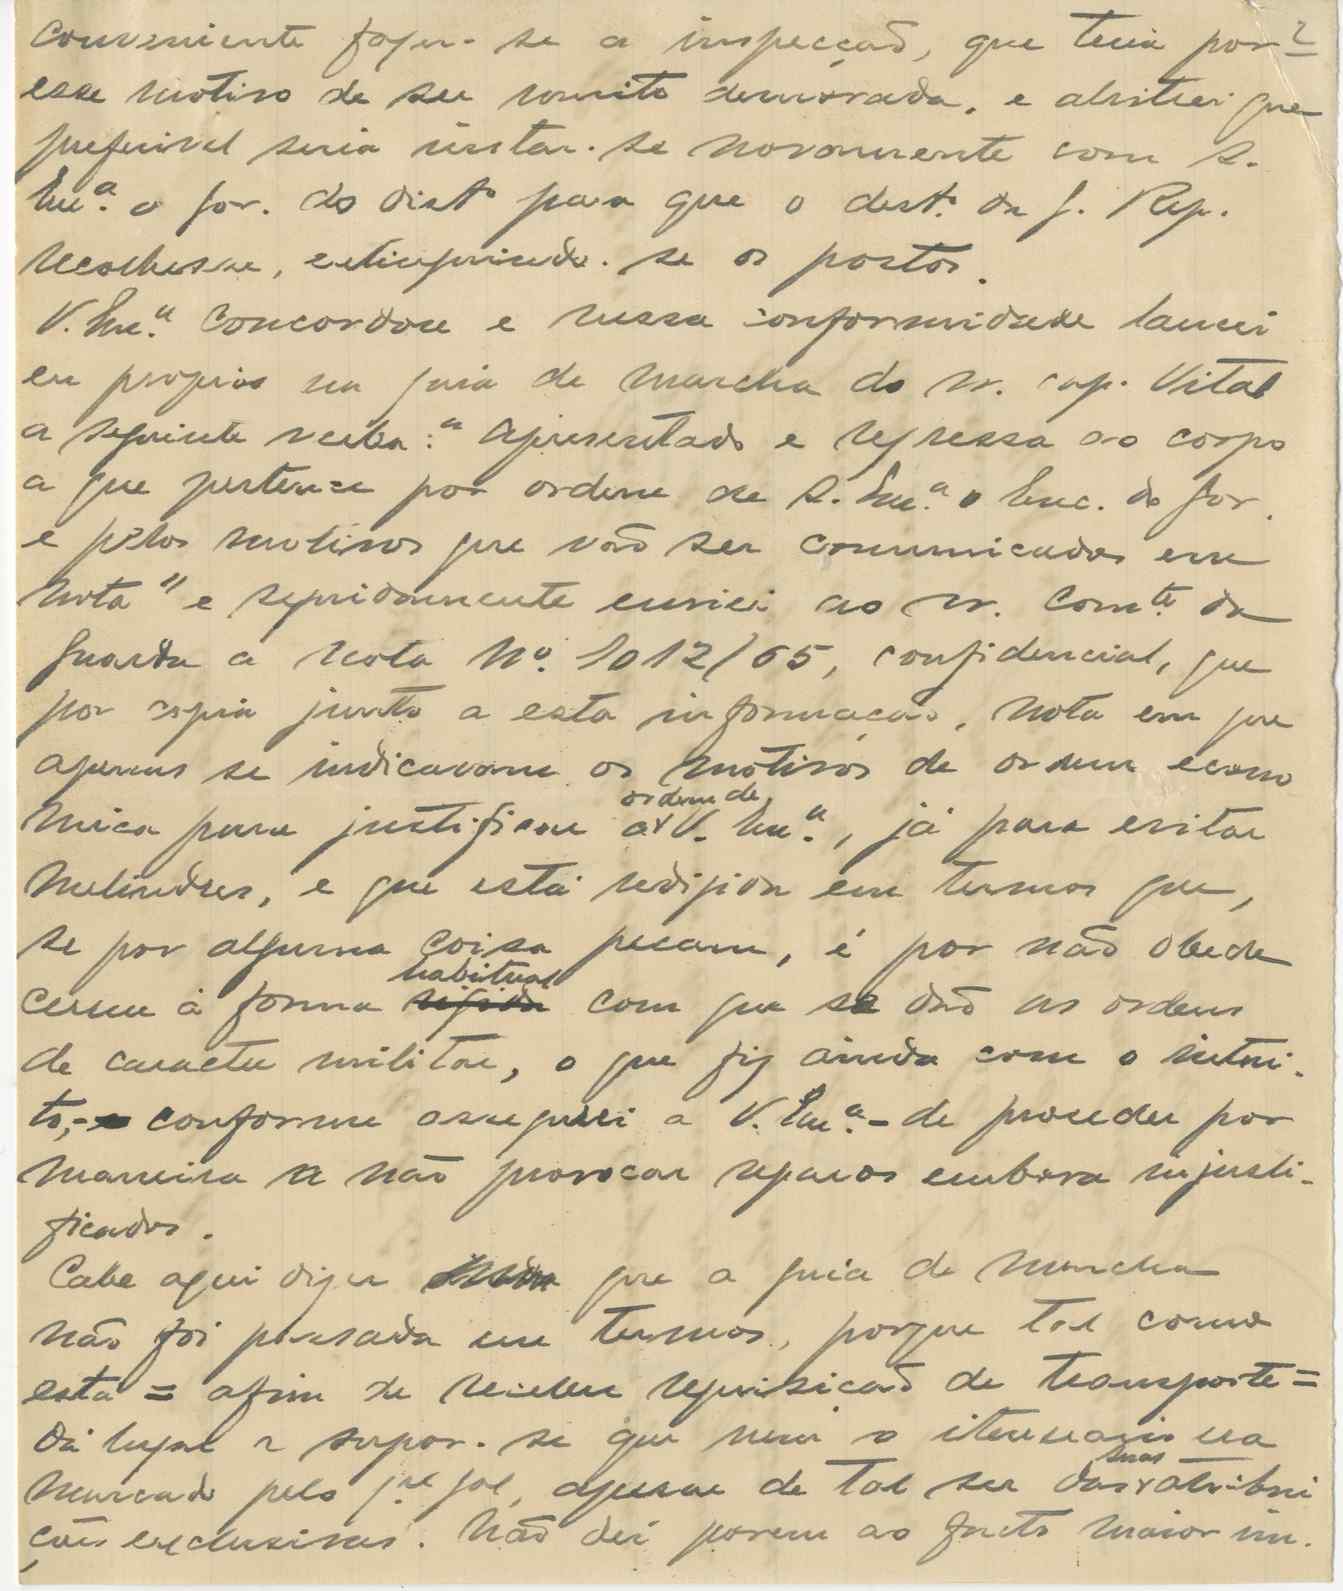 conveniente fazer-se a inspecção, que teria por 2
esse motivo de ser muito demorada, e alvitrei que
preferivel seria instar-se novamente com S.
Exª. o Gov. do distº para que o destº. da g. Rep.
recolhesse, extinguindo-se os postos.
V. Exª. concordou e nessa conformidade lancei
eu proprio na guia de marcha do sr. cap. Vital
a seguinte verba: "Apresentado e regressa ao corpo
a que pertence por ordem de S. Exª. o Enc. do Gov.
e pelos motivos que vão ser comunicados em
nota" e seguidamente enviei ao sr. Comte. da
Guarda a nota Nº. 1012/65, confidencial, que
por copia junto a esta informação, nota em que
apenas se indicavam os motivos de ordem econo
mica para justificar a ordem de V. Exª., já para evitar
melindres, e que está redigida em termos que,
se por alguma coisa pecam, é por não obede
cerem á forma habitual com que se dão as ordens
de caracter militar, o que fiz ainda com o intui-
to, - conforme assegurei a V. Exª. - de proceder por
maneira a não provocar reparos embora injusti-
ficados.
Cabe aqui dizer que a guia de marcha
não foi passada em termos, porque tal como
está = afim de receber requisição de transporte =
dá lugar a supor-se que nem o itenerario era
marcado pelo qel gal, apesar de tal ser das suas atribui
ções exclusivas. Não dei porem ao facto maior im-